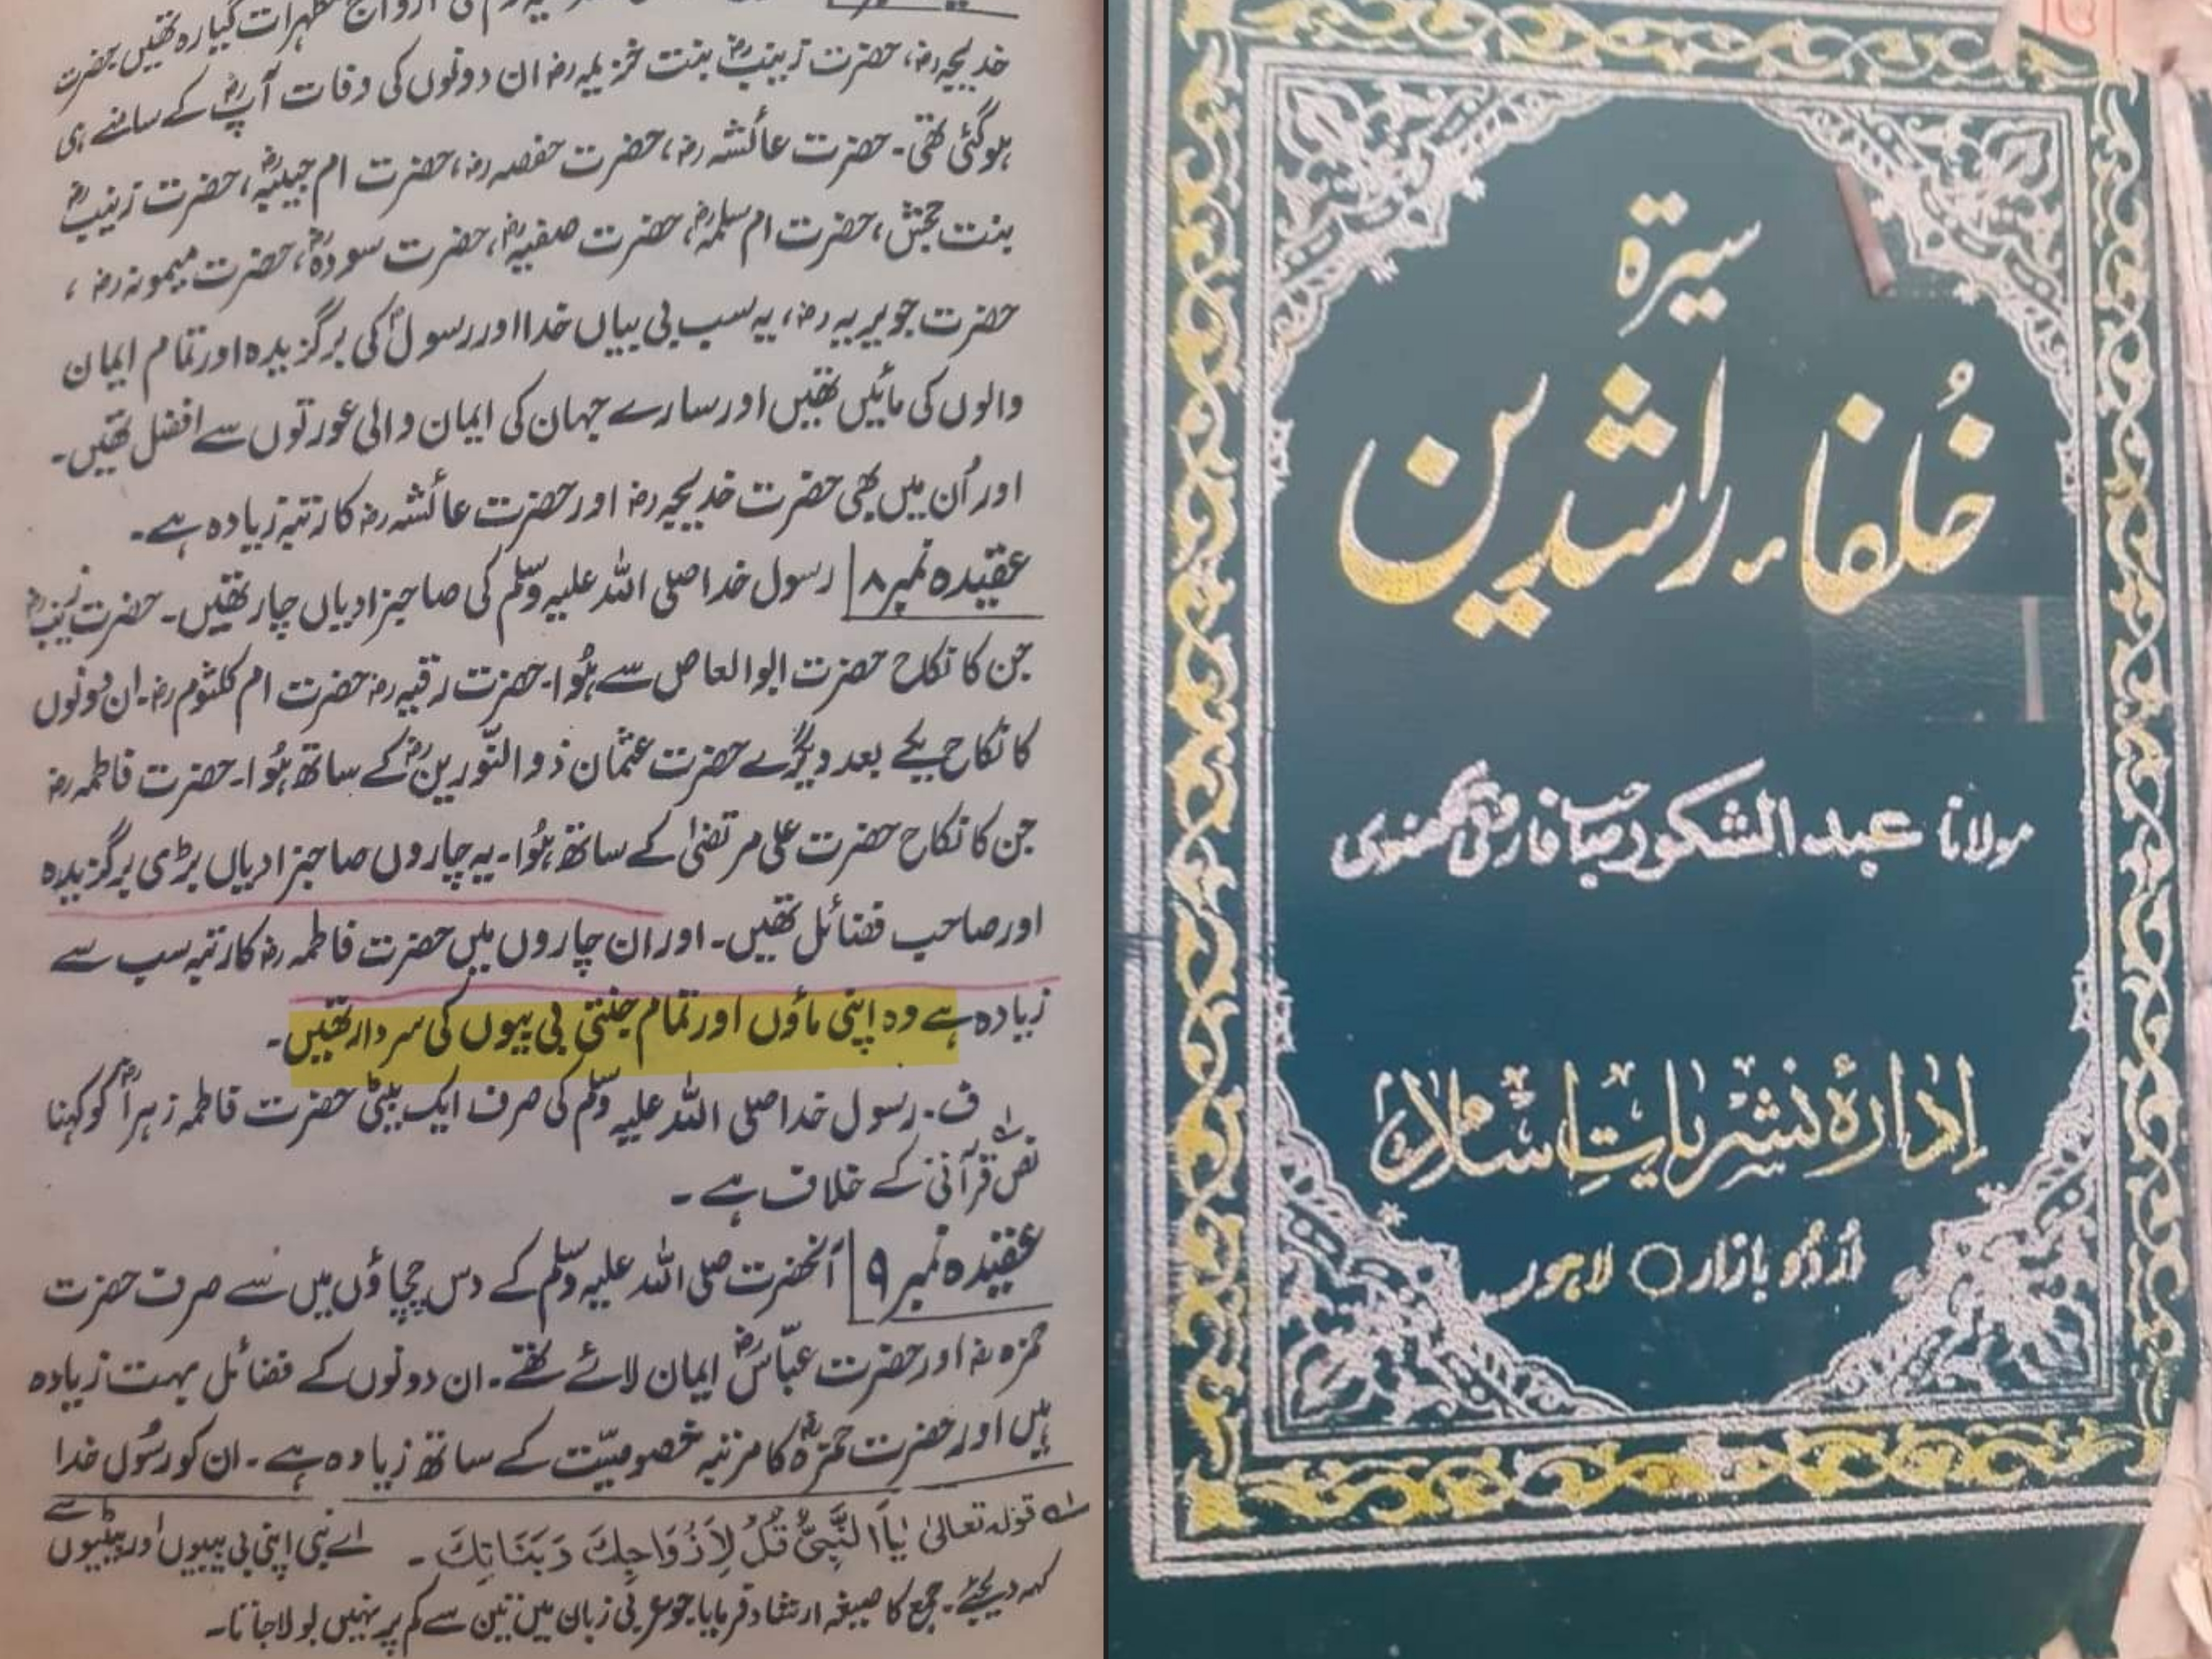 ازواج مطہرات گیارہ تھیں حضرت
خدیجہ رضہ، حضرت زینبؓ بنت خزیمہ رضہ ان دونوں کی وفات آپؐ کے سامنے ہی
ہو گئی تھی۔ حضرت عائشہ رضہ، حضرت حفصہ رضہ، حضرت ام حبیبہؓ، حضرت زینبؓ
بنت جحش، حضرت ام سلمہؓ، حضرت صفیہؓ، حضرت سودہؓ، حضرت میمونہ رضہ،
حضرت جویریہ رضہ، یہ سب بی بیاں خدا اور رسولؐ کی برگزیدہ اور تمام ایمان
والوں کی مائیں تھیں اور سارے جہان کی ایمان والی عورتوں سے افضل تھیں۔
اور اُن میں بھی حضرت خدیجہ رضہ اور حضرت عائشہ رضہ کا رتبہ زیادہ ہے۔
عقیدہ نمبر ۸ رسول خدا صلی اللہ علیہ وسلم کی صاحبزادیاں چار تھیں۔ حضرت زینبؓ
جن کا نکاح حضرت ابوالعاص سے ہُوا۔ حضرت رقیہ رضہ حضرت ام کلثوم رضہ۔ ان دونوں
کا نکاح یکے بعد دیگرے حضرت عثمان ذوالنّورینؓ کے ساتھ ہُوا۔ حضرت فاطمہ رضہ
جن کا نکاح حضرت علی مرتضیٰ کے ساتھ ہُوا۔ یہ چاروں صاحبزادیاں بڑی برگزیدہ
اور صاحب فضائل تھیں۔ اور ان چاروں میں حضرت فاطمہ رضہ کا رتبہ سب سے
زیادہ ہے وہ اپنی ماؤں اور تمام جنتی بی بیوں کی سردار تھیں۔
ف۔ رسول خدا صلی اللہ علیہ وسلم کی صرف ایک بیٹی حضرت فاطمہ زہراؓ کو کہنا
نص قرآنی لہ کے خلاف ہے۔
عقیدہ نمبر ۹ آنحضرت صلی اللہ علیہ وسلم کے دس چچاؤں میں سے صرف حضرت
حمزہ رضہ اور حضرت عبّاسؓ ایمان لائے تھے۔ ان دونوں کے فضائل بہت زیادہ
ہیں اور حضرت حمزہؓ کا مرتبہ خصوصیّت کے ساتھ زیادہ ہے۔ ان کو رسُول خدا
لہ قولہ تعالیٰ یٰاَاَلنَّبِیُّ قُلْ لِاَزْوَاجِكَ وَبَنَاتِكَ۔ اے نبی اپنی بی بیوں اور بیٹیوں سے
کہہ دیجئے۔ جمع کا صیغہ ارشاد فرمایا جو عربی زبان میں تین سے کم پر نہیں بولا جاتا۔
سیرۃ
خُلفاءِ راشدین
مولانا عبدالشکور صاحب فاروقی لکھنوی
اِدارۂ نشریاتِ اسلام
اُردُو بازار ○ لاہور